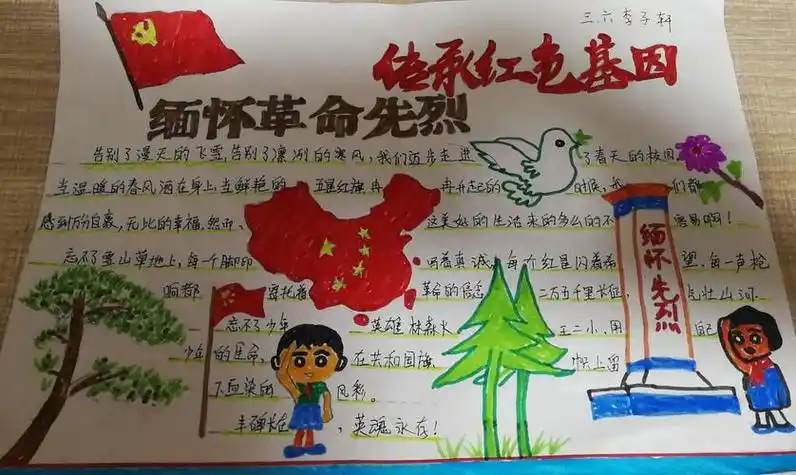 三.六 李子轩
传承红色基因
缅怀革命先烈
告别了漫天的飞雪,告别了凛冽的寒风,我们迈步走进了春天的校园
当温暖的春风洒在身上,当鲜艳的五星红旗冉冉升起的时候,我们都
感到万分自豪,无比的幸福.然而、这美好的生活来的多么的不容易啊!
忘不了雪山草地上,每一个脚印写着真诚,每个红星闪着希望,每一声枪
响都寄托着革命的信念 二万五千里长征 壮山河.
忘不了少年英雄林森火 王二小,用自己
少年的生命,在共和国旗帜上留
下血染的风彩。
丰碑长在,英魂永存!
缅怀先烈